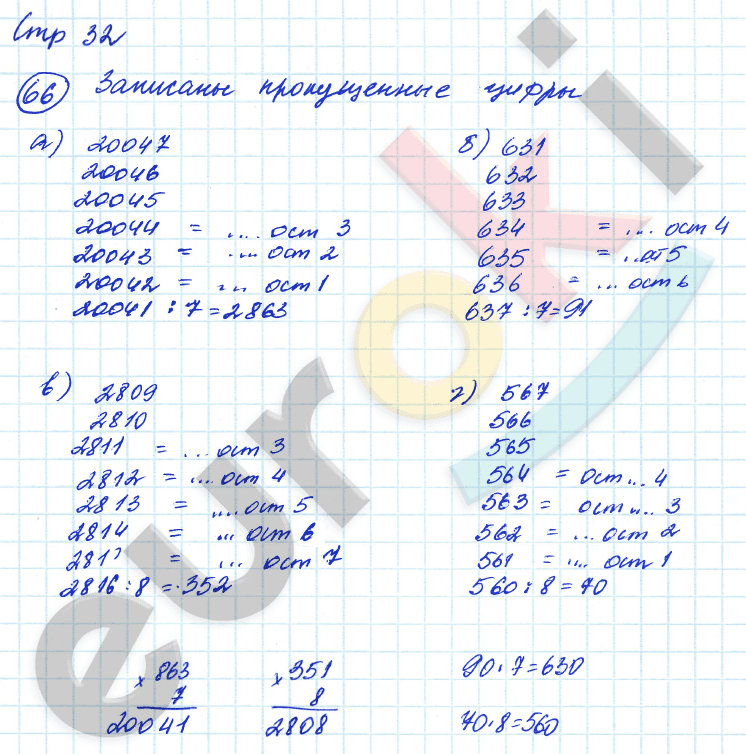 Стр 32
66 Записаны пропущенные цифры
а) 20047
20046
20045
20044 = .... ост 3
20043 = .... ост 2
20042 = ... ост 1
20041 : 7 = 2863
б) 631
632
633
634 = ... ост 4
635 = ...ост 5
636 = ... ост 6
637 : 7 = 91
в) 2809
2810
2811 = ... ост 3
2812 = .... ост 4
2813 = .... ост 5
2814 = ... ост 6
281 = ... ост 7
2816 : 8 = 352
г) 567
566
565
564 = ост ... 4
563 = ост ... 3
562 = ... ост 2
561 = .... ост 1
560 : 8 = 70
× 863
7
20041
× 351
8
2808
90 · 7 = 630
70 · 8 = 560
euroki